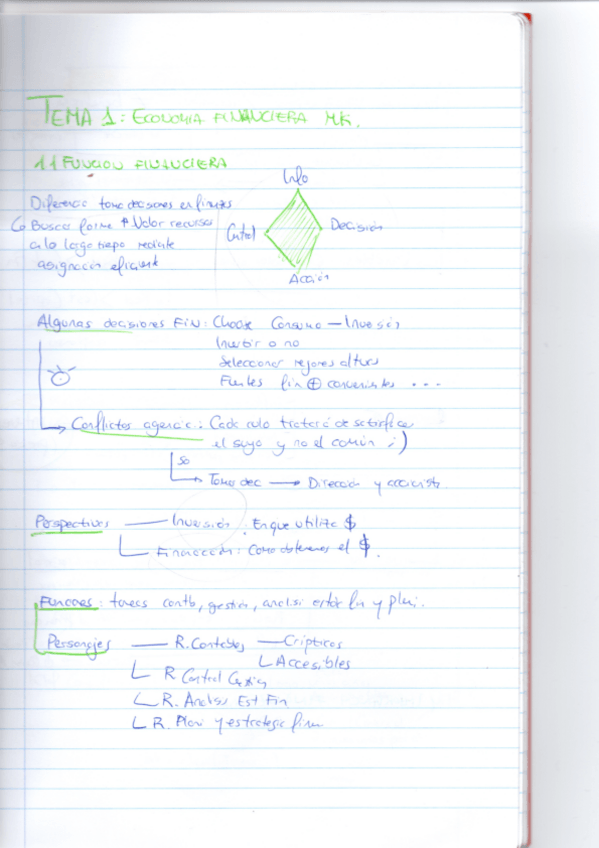 TEMA 1: ECONOMIA FINANCIERA MK.
1.1 FUNCION FINANCIERA
Info
Diferencia toma decisiones en finanzas
Busca forma ↑ Valor recursos
Control
Decisión
a lo largo tiempo mediante
asignación eficiente
Acción
Algunas decisiones FIN: Choose Consumo — Inversión
Invertir o no
Seleccionar mejores alturs
Fuentes fin ⊕ convenientes ...
Conflictos agencia: Cada culo tratará de satisfacer
el suyo y no el común ;)
so
Tomar dec → Dirección y accionista
Perspectivas — Inversión: En que utilizo $
Financiación: Como obtenemos el $.
Funciones: tareas contb, gestión, analisi estdo fin y plani.
Personajes — R. Contables — Cripticos
Accesibles
R Control Gestión
R. Analisis Est Fin
R. Plani y estrategia finan